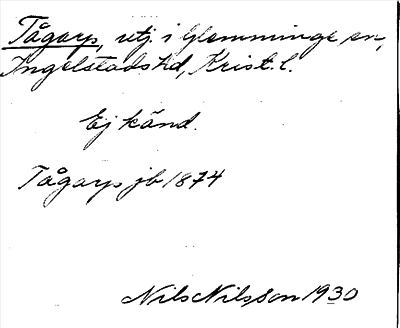 Tågarp, utj. i Glemminge sn,
Ingelstads hd, Krist. l.
Ej känd.
Tågarps jb 1874
Nils Nilsson 1930